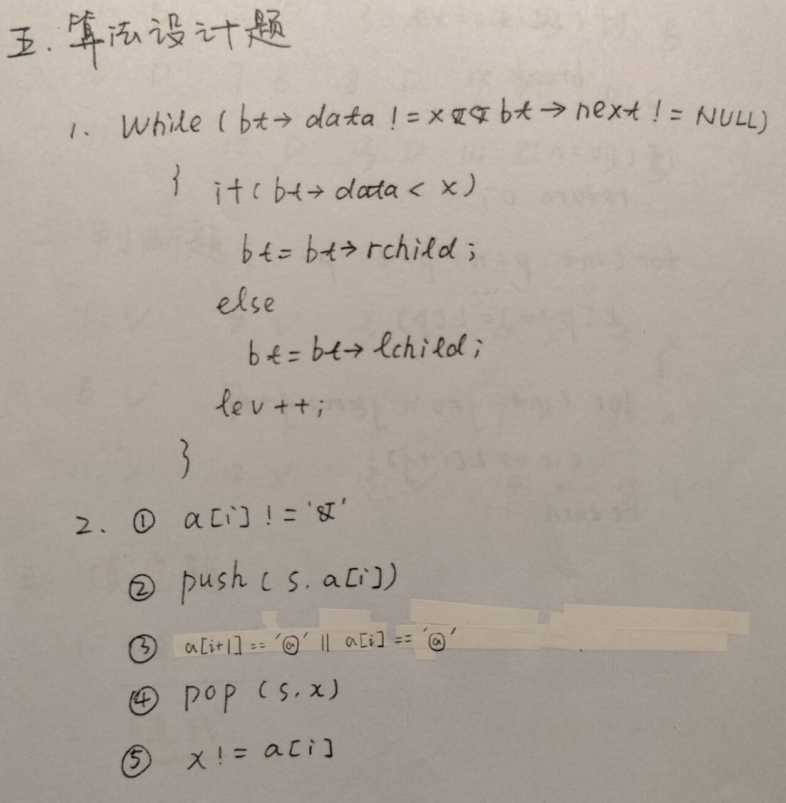 五. 算法设计题
1. While (bt→data != x && bt→next != NULL)
{ if (bt→data < x)
bt = bt→rchild;
else
bt = bt→lchild;
lev++;
}
2. ① a[i] != '&'
② push (s. a[i])
③ a[i+1] == '@' || a[i] == '@'
④ pop (s.x)
⑤ x != a[i]